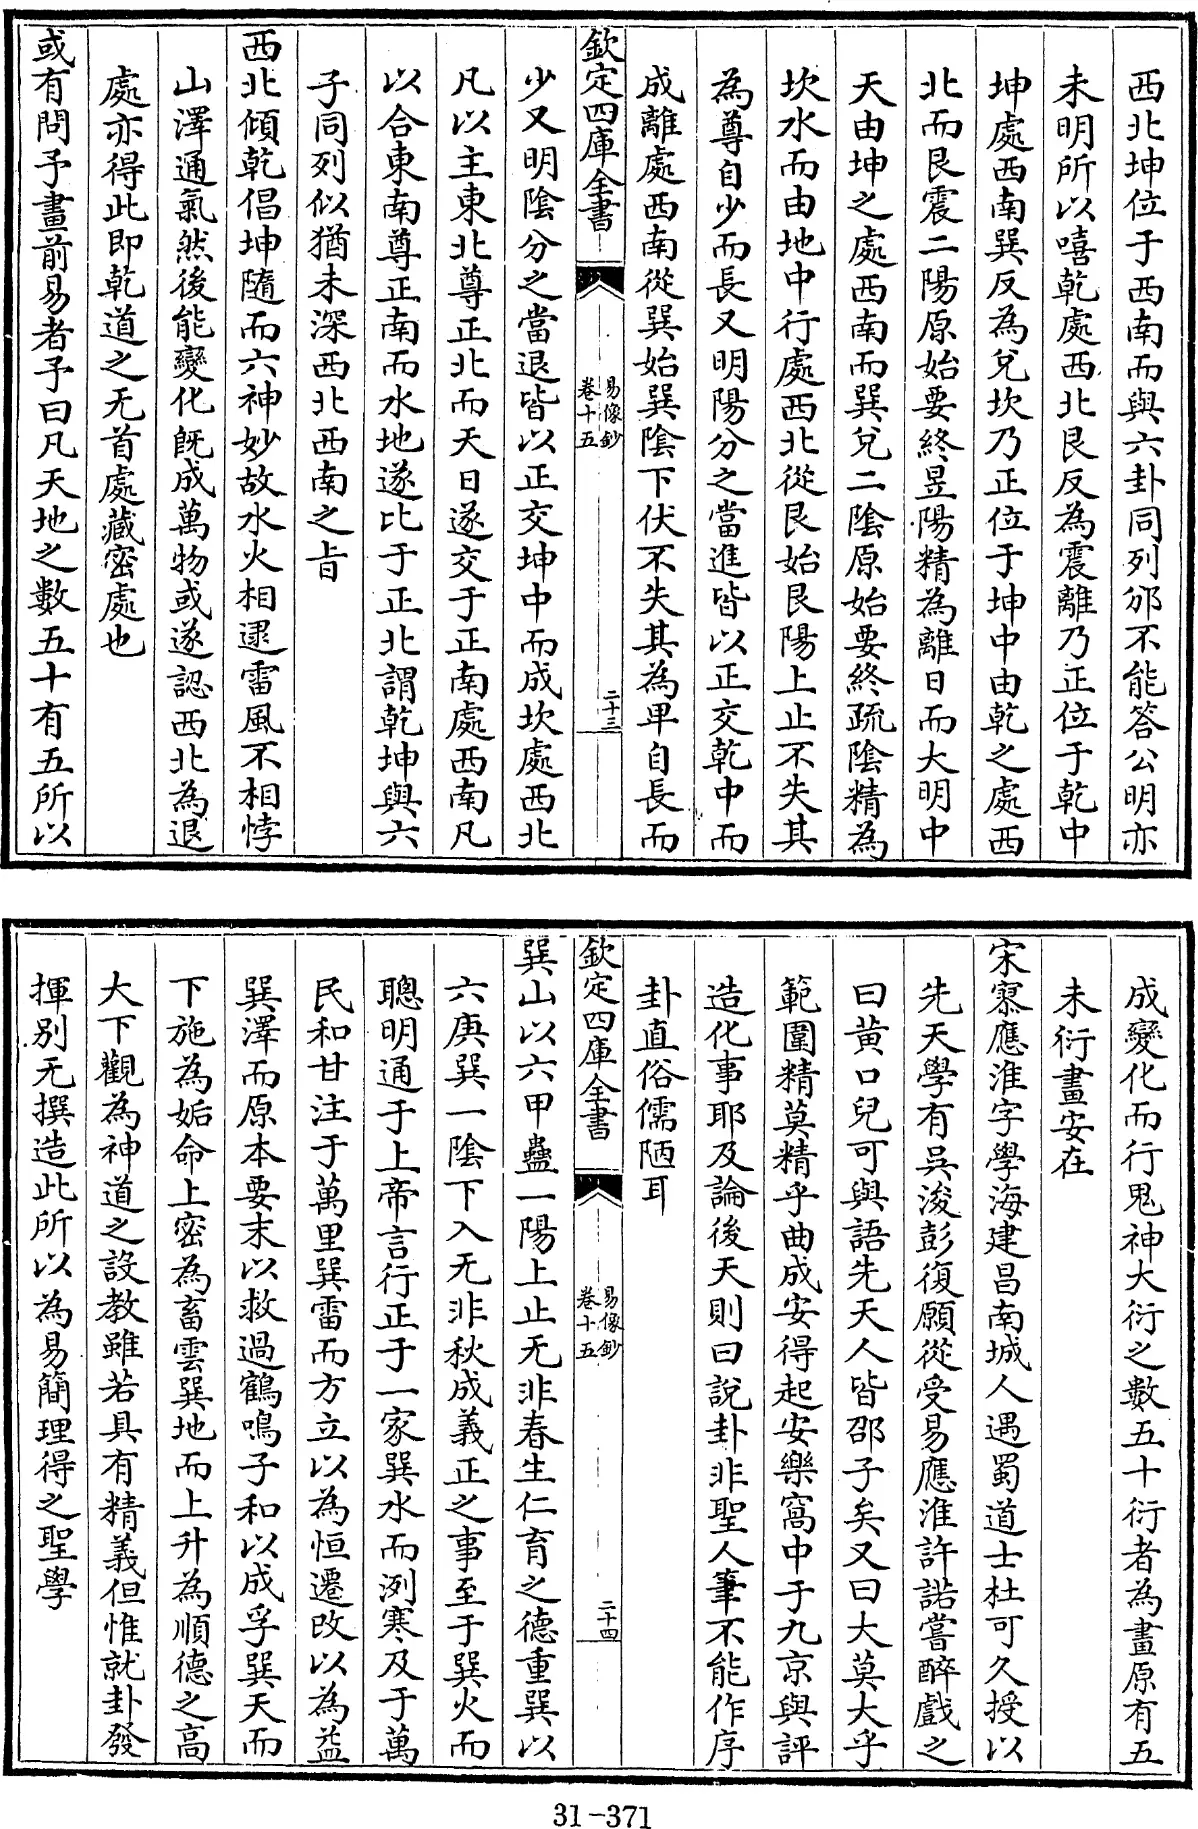 西北坤位于西南而與六卦同列邠不能答公明亦
未明所以嘻乾處西北艮反為震離乃正位于乾中
坤處西南巽反為兌坎乃正位于坤中由乾之處西
北而艮震二陽原始要終昱陽精為離日而大明中
天由坤之處西南而巽兌二陰原始要終疏陰精為
坎水而由地中行處西北從艮始艮陽上止不失其
為尊自少而長又明陽分之當進皆以正交乾中而
成離處西南從巽始巽陰下伏不失其為卑自長而
欽定四庫全書
易像鈔
卷十五
二十三
少又明陰分之當退皆以正交坤中而成坎處西北
凡以主東北尊正北而天日遂交于正南處西南凡
以合東南尊正南而水地遂比于正北謂乾坤與六
子同列似猶未深西北西南之㫖
西北傾乾倡坤隨而六神妙故水火相逮雷風不相悖
山澤通氣然後能變化既成萬物或遂認西北為退
處亦得此即乾道之无首處藏密處也
或有問予畫前易者予曰凡天地之數五十有五所以
成變化而行鬼神大衍之數五十衍者為畫原有五
未衍畫安在
宋寮應淮字學海建昌南城人遇蜀道士杜可久授以
先天學有吳浚彭復願從受易應淮許諾嘗醉戲之
曰黃口兒可與語先天人皆邵子矣又曰大莫大乎
範圍精莫精乎曲成安得起安樂窩中于九京與評
造化事耶及論後天則曰說卦非聖人筆不能作序
卦直俗儒陋耳
欽定四庫全書
易像鈔
卷十五
二十四
巽山以六甲蠱一陽上止无非春生仁育之德重巽以
六庚巽一陰下入无非秋成義正之事至于巽火而
聰明通于上帝言行正于一家巽水而洌寒及于萬
民和甘注于萬里巽雷而方立以為恒遷改以為益
巽澤而原本要末以救過鶴鳴子和以成孚巽天而
下施為姤命上密為畜雲巽地而上升為順德之高
大下觀為神道之設教雖若具有精義但惟就卦發
揮別无撰造此所以為易簡理得之聖學
31-371